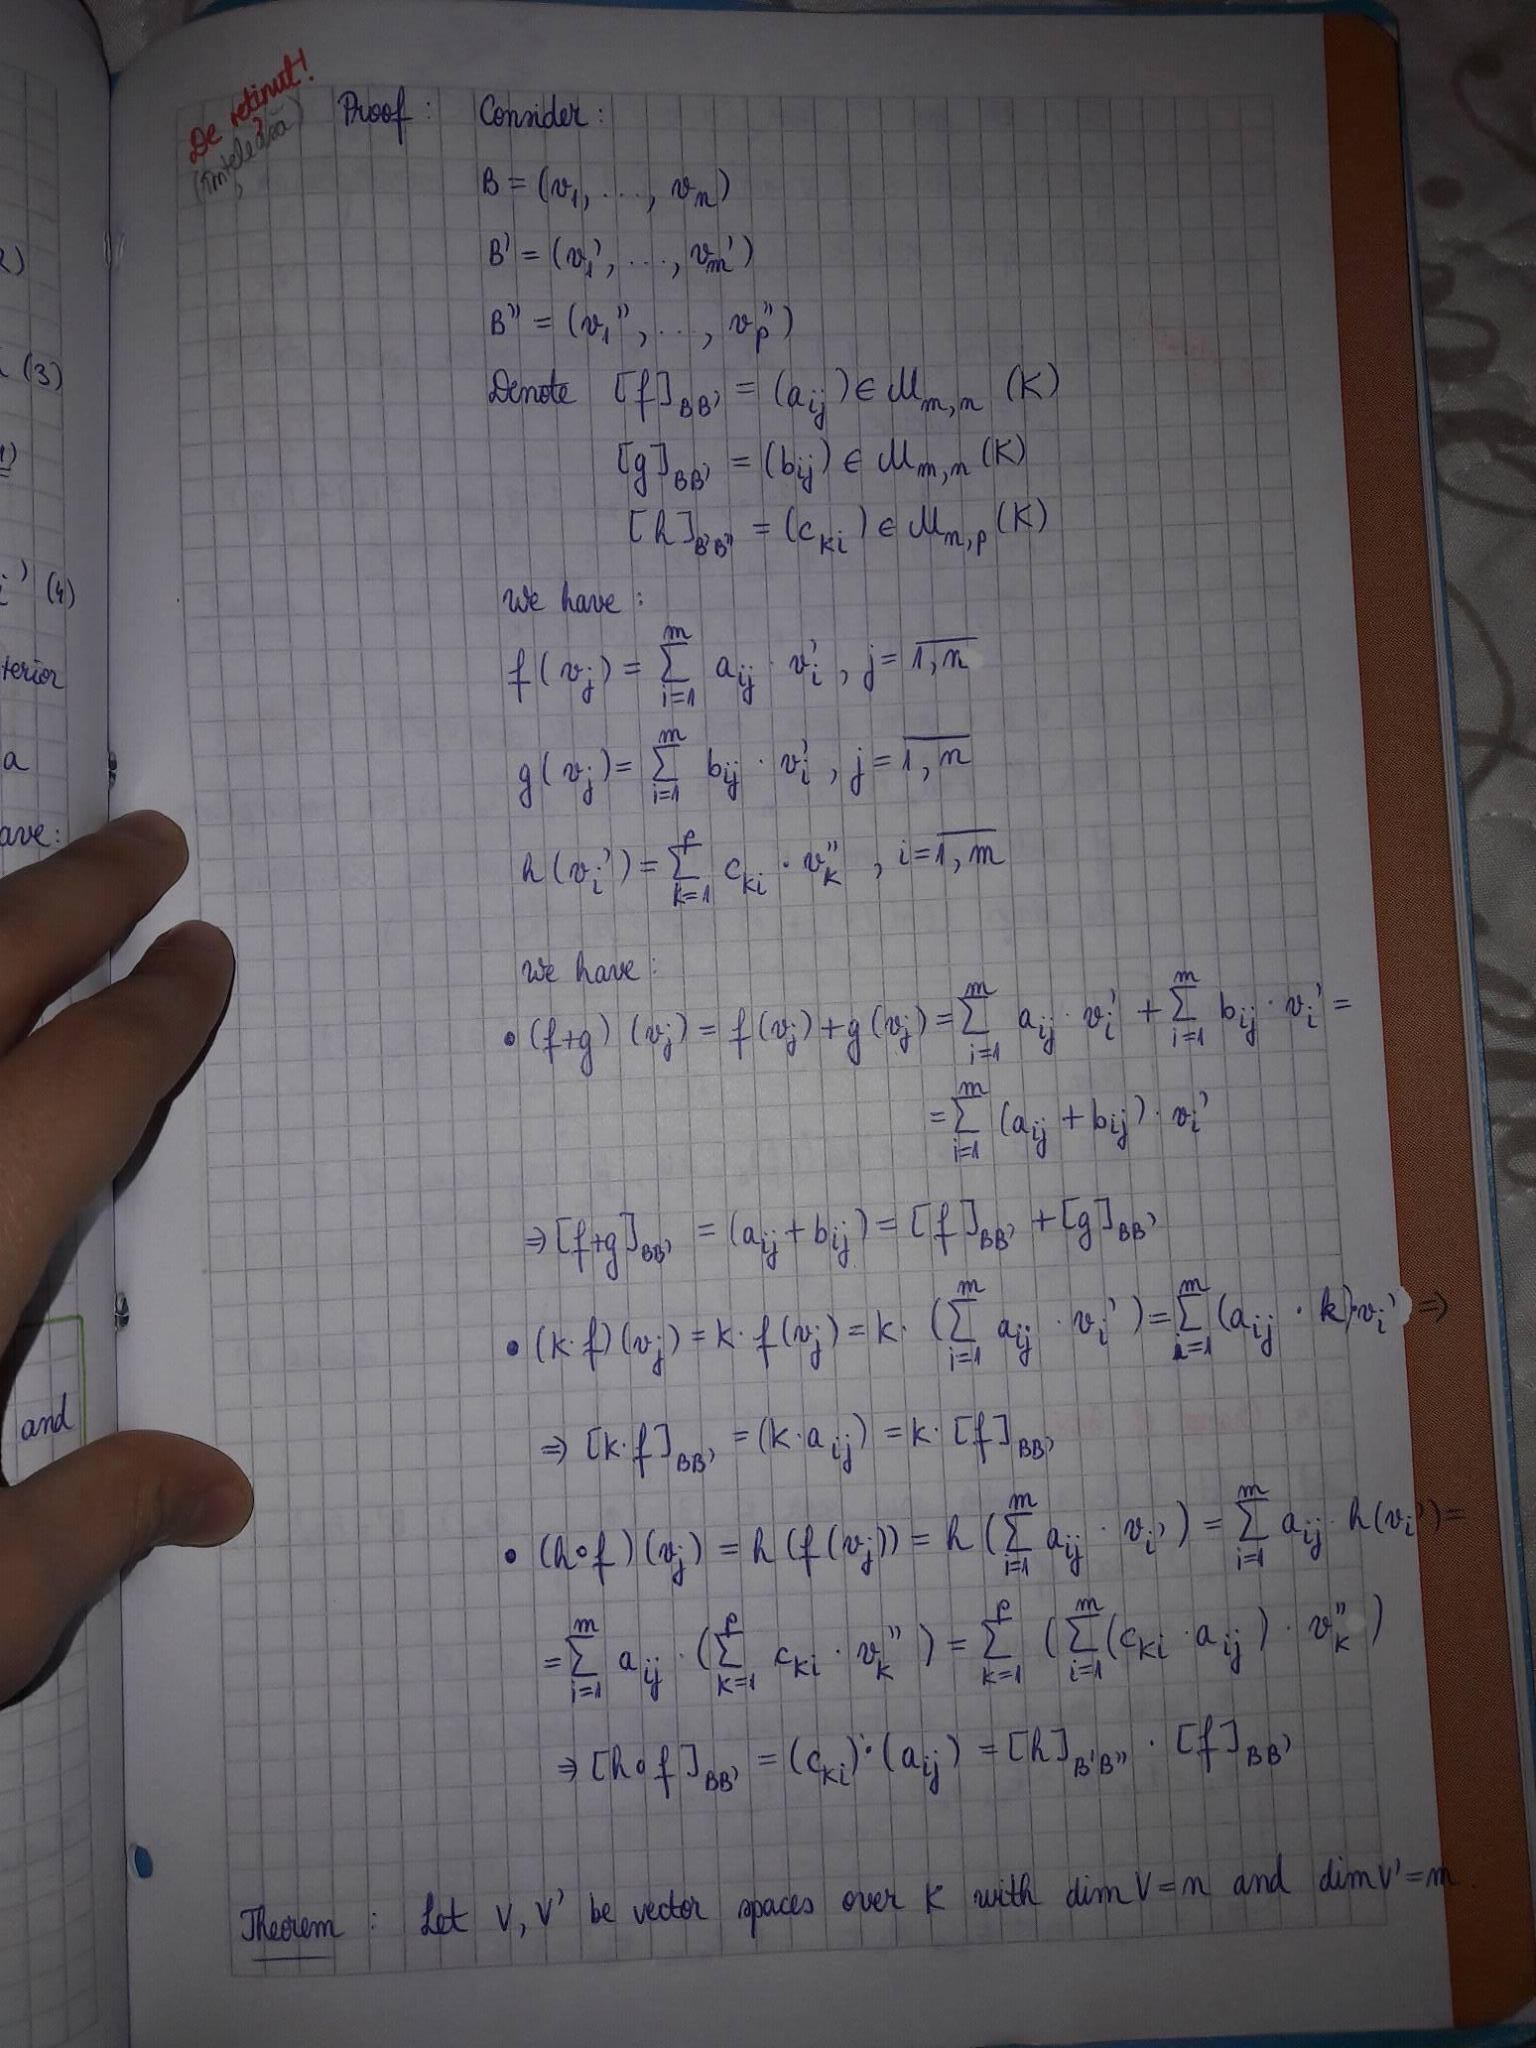 De reținut!
(înțeleasă)
Proof: Consider:
B = (v₁, ..., vₙ)
B' = (v₁', ..., vₘ')
B'' = (v₁'', ..., vₚ'')
Denote [f]_BB' = (a_ij) ∈ M_m,n (K)
[g]_BB' = (b_ij) ∈ M_m,n (K)
[h]_B'B'' = (c_ki) ∈ M_m,p (K)
We have:
f(v_j) = Σ_{i=1}^{m} a_ij · v_i', j = \overline{1,n}
g(v_j) = Σ_{i=1}^{m} b_ij · v_i', j = \overline{1,n}
h(v_i') = Σ_{k=1}^{p} c_ki · v_k'', i = \overline{1,m}
We have:
• (f+g)(v_j) = f(v_j) + g(v_j) = Σ_{i=1}^{m} a_ij · v_i' + Σ_{i=1}^{m} b_ij · v_i' =
= Σ_{i=1}^{m} (a_ij + b_ij) · v_i'
⇒ [f+g]_BB' = (a_ij + b_ij) = [f]_BB' + [g]_BB'
• (k·f)(v_j) = k · f(v_j) = k · (Σ_{i=1}^{m} a_ij · v_i') = Σ_{i=1}^{m} (a_ij · k)·v_i' ⇒
⇒ [k·f]_BB' = (k·a_ij) = k · [f]_BB'
• (h∘f)(v_j) = h(f(v_j)) = h(Σ_{i=1}^{m} a_ij · v_i') = Σ_{i=1}^{m} a_ij · h(v_i') =
= Σ_{i=1}^{m} a_ij · (Σ_{k=1}^{p} c_ki · v_k'') = Σ_{k=1}^{p} (Σ_{i=1}^{m} (c_ki · a_ij) · v_k'')
⇒ [h∘f]_BB' = (c_ki) · (a_ij) = [h]_B'B'' · [f]_BB'
Theorem: Let V, V' be vector spaces over K with dim V = n and dim V' = m.
(3)
(4)
terior
a
ave:
and